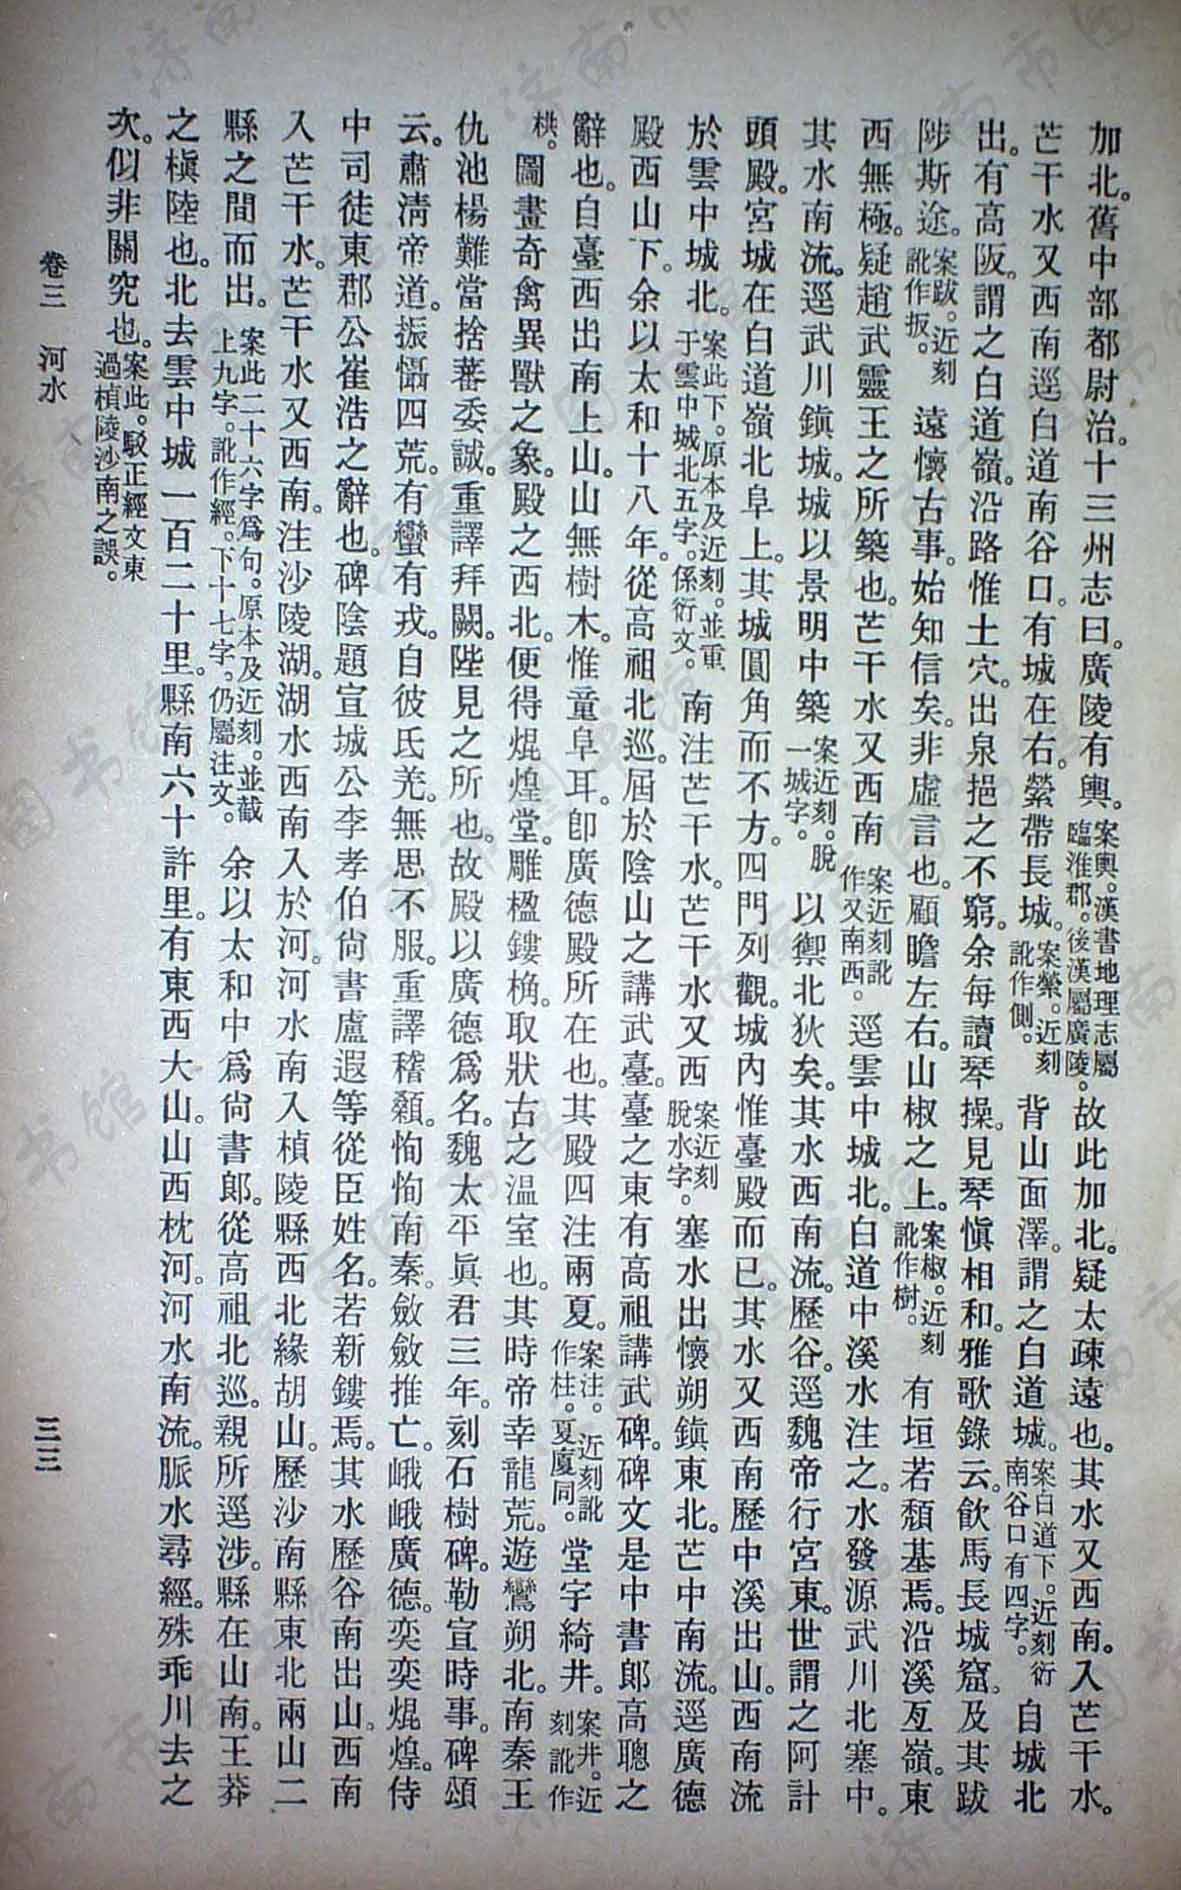 加北。舊中部都尉治。十三州志曰。廣陵有輿。案輿。漢書地理志屬臨淮郡。後漢屬廣陵。故此加北。疑太疎遠也。其水又西南。入芒干水。
芒干水又西南逕白道南谷口。有城在右。縈帶長城。案縈。近刻訛作側。背山面澤。謂之白道城。案白道下。近刻衍南谷口有四字。自城北
出。有高阪。謂之白道嶺。沿路惟土穴。出泉挹之不窮。余每讀琴操。見琴愼相和。雅歌錄云。飲馬長城窟。及其跋
陟斯途。案跋。近刻訛作扳。遠懷古事。始知信矣。非虛言也。顧瞻左右。山椒之上。案椒。近刻訛作樹。有垣若頽基焉。沿溪亙嶺。東
西無極。疑趙武靈王之所築也。芒干水又西南案近刻訛作又南西。逕雲中城北。白道中溪水注之。水發源武川北塞中。
其水南流。逕武川鎮城。城以景明中築案近刻。脫一城字。以禦北狄矣。其水西南流。歷谷。逕魏帝行宮東。世謂之阿計
頭殿。宮城在白道嶺北阜上。其城圓角而不方。四門列觀。城內惟臺殿而已。其水又西南歷中溪出山。西南流
於雲中城北。案此下。原本及近刻。並重于雲中城北五字。係衍文。南注芒干水。芒干水又西案近刻脫水字。塞水出懷朔鎮東北。芒中南流。逕廣德
殿西山下。余以太和十八年。從高祖北巡。屆於陰山之講武臺。臺之東有高祖講武碑。碑文是中書郞高聰之
辭也。自臺西出南上山。山無樹木。惟童阜耳。卽廣德殿所在也。其殿四注兩夏。案注。近刻訛作柱。夏廈同。堂宇綺井。案井。近刻訛作
栱。圖畫奇禽異獸之象。殿之西北。便得焜煌堂。雕楹鏤桷。取狀古之温室也。其時帝幸龍荒。遊鸞朔北。南秦王
仇池楊難當捨蕃委誠。重譯拜闕。陛見之所也。故殿以廣德爲名。魏太平眞君三年。刻石樹碑。勒宣時事。碑頌
云。肅淸帝道。振懾四荒。有蠻有戎。自彼氐羌。無思不服。重譯稽顙。恂恂南秦。斂斂推亡。峨峨廣德。奕奕焜煌。侍
中司徒東郡公崔浩之辭也。碑陰題宣城公李孝伯尙書盧遐等從臣姓名。若新鏤焉。其水歷谷南出山。西南
入芒干水。芒干水又西南。注沙陵湖。湖水西南入於河。河水南入楨陵縣西北緣胡山。歷沙南縣東北兩山二
縣之間而出。案此二十六字爲句。原本及近刻。並截上九字。訛作經。下十七字。仍屬注文。余以太和中爲尙書郞。從高祖北巡。親所逕涉。縣在山南。王莽
之槇陸也。北去雲中城一百二十里。縣南六十許里。有東西大山。山西枕河。河水南流。脈水尋經。殊乖川去之
次。似非關究也。案此。駁正經文東過楨陵沙南之誤。
卷三 河水
三三